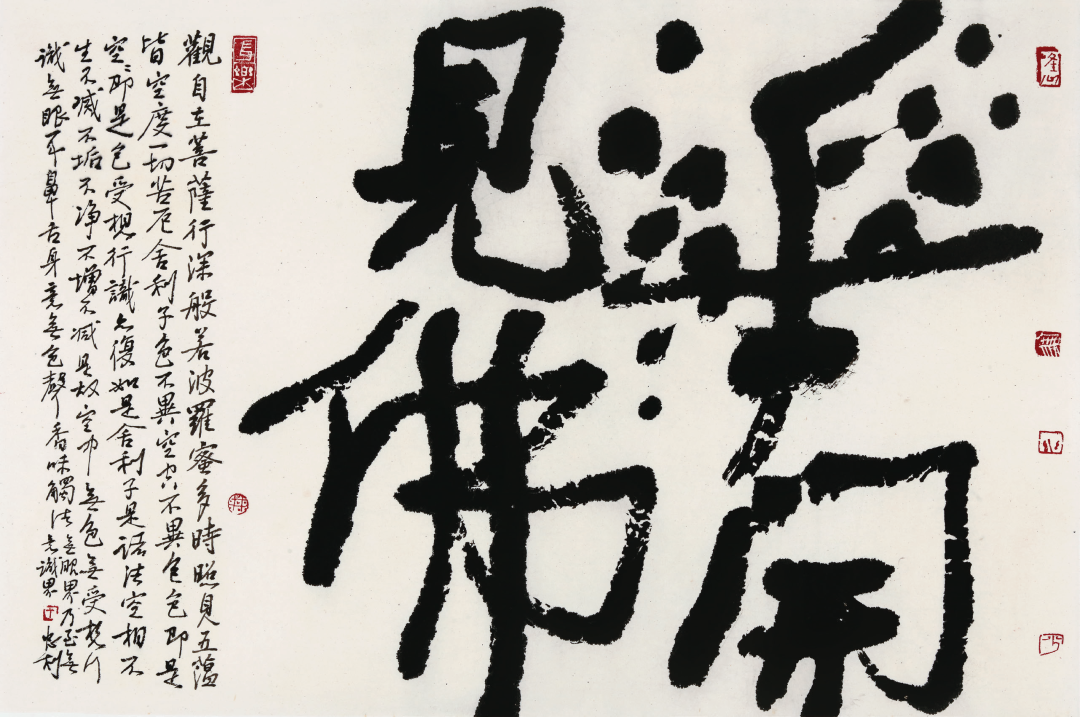 華開
見佛
觀自在菩薩行深般若波羅蜜多時照見五蕴
皆空度一切苦厄舍利子色不異空空不異色色即是
空空即是色受想行識亦復如是舍利子是諸法空相不
生不滅不垢不净不增不减是故空中無色無受想行
識無眼耳鼻舌身意無色聲香味觸法無眼界乃至無
意識界
忠利